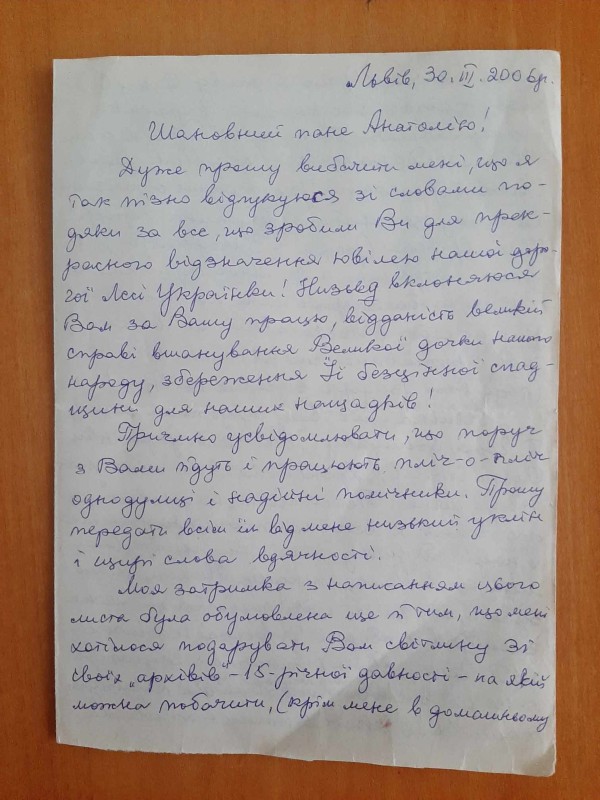 Львів, 30.III.2006р.
Шановний пане Анатолію!
Дуже прошу вибачити мені, що я
так пізно відгукуюся зі словами по-
дяки за все, що зробили Ви для прек-
расного відзначення ювілею нашої доро-
гої Лесі Українки! Низько вклоняюся
Вам за Вашу працю, відданість великій
справі вшанування Великої дочки нашого
народу, збереження Її безцінної спад-
щини для наших нащадків!
Приємно усвідомлювати, що поруч
з Вами йдуть і працюють пліч-о-пліч
однодумці і надійні помічники. Прошу
передати всім їм від мене низький уклін
і щирі слова вдячності.
Моя затримка з написанням цього
листа була обумовлена ще й тим, що мені
хотілося подарувати Вам світлину зі
своїх „архівів" – 15-річної давності – на якій
можна побачити, (крім мене в домашньому